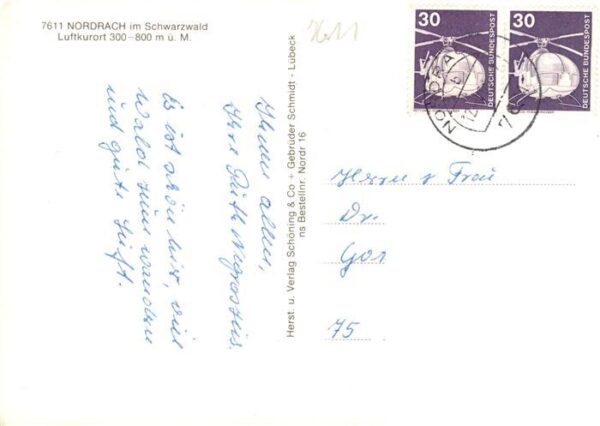 7611 NORDRACH im Schwarzwald
Luftkurort 300–800 m ü. M.
7611
30
DEUTSCHE BUNDESPOST
30
DEUTSCHE BUNDESPOST
NORDRA
12
76
Es ist schön hier, viel
Wald zum wandern
und gute Luft.
Ihnen allen,
Ihre Ruth
Herst. u. Verlag Schöning & Co + Gebrüder Schmidt - Lübeck
ns Bestellnr. Nordr 16
Herrn u Frau
Dr.
Gor
75